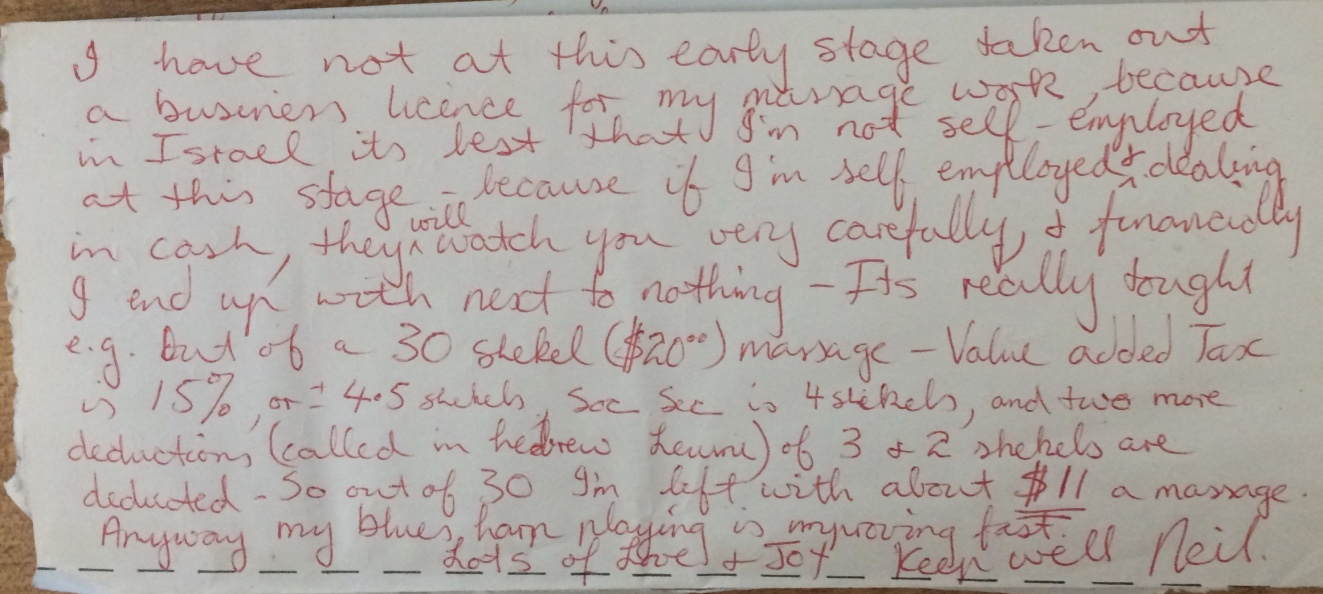 I have not at this early stage taken out
a business licence for my massage work, because
in Israel its best that I'm not self-employed
at this stage - because if I'm self employed & dealing
in cash, they will watch you very carefully, & financially
I end up with next to nothing - Its really tought
e.g. Out of a 30 shekel ($20⁰⁰) massage - Value added Tax
is 15%, or ± 4.5 shekels, Soc Sec is 4 shekels, and two more
deductions (called in hebrew Leumi) of 3 & 2 shekels are
deducted - So out of 30 I'm left with about $11 a massage.
Anyway my blues harp playing is improving fast.
Lots of Love & Joy Keep well Neil.